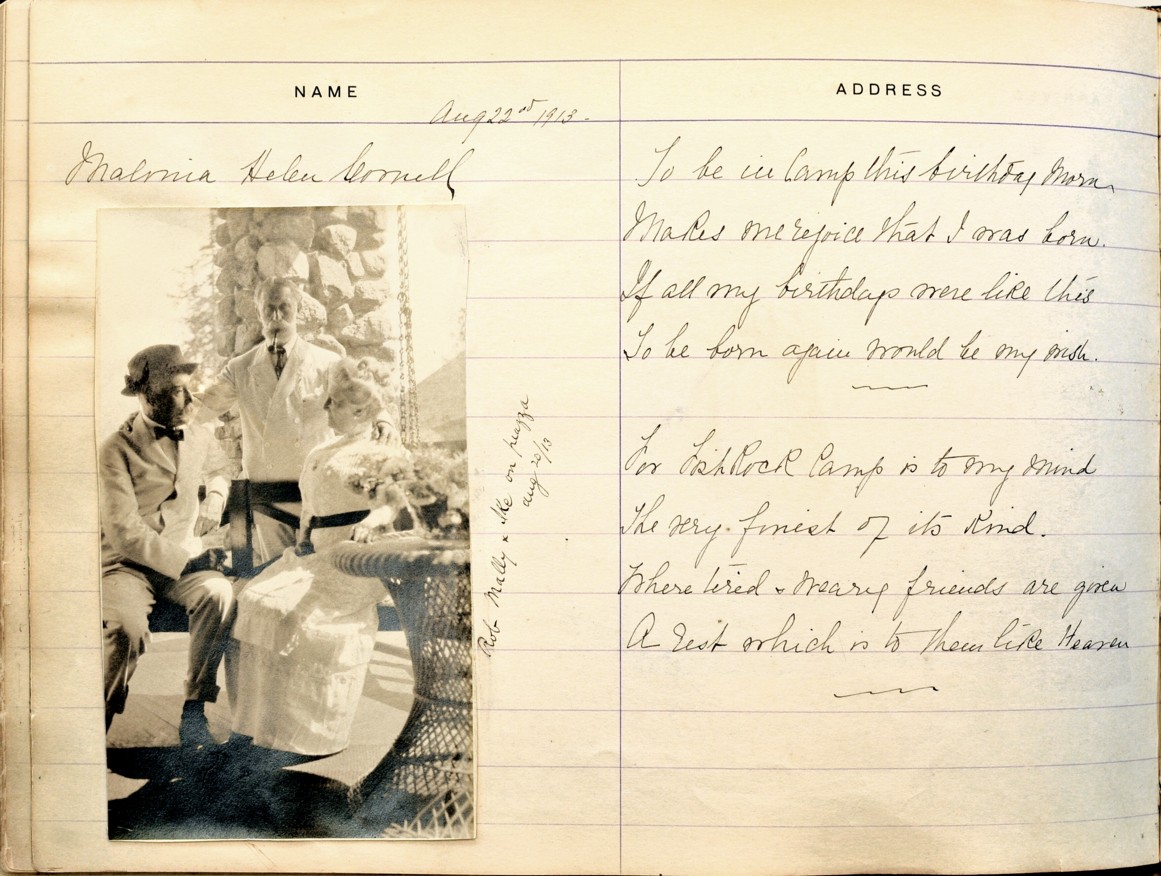 NAME
ADDRESS
Aug 22nd 1913-
Malvina Helen Cornell
To be in Camp this birthday Morn
Makes me rejoice that I was born.
If all my birthdays were like this
To be born again would be my wish.
For FishRock Camp is to my mind
The very finest of its kind.
Where tired & weary friends are given
A Rest which is to them like Heaven
Rob Mally & Ike on piazza
aug 20/13